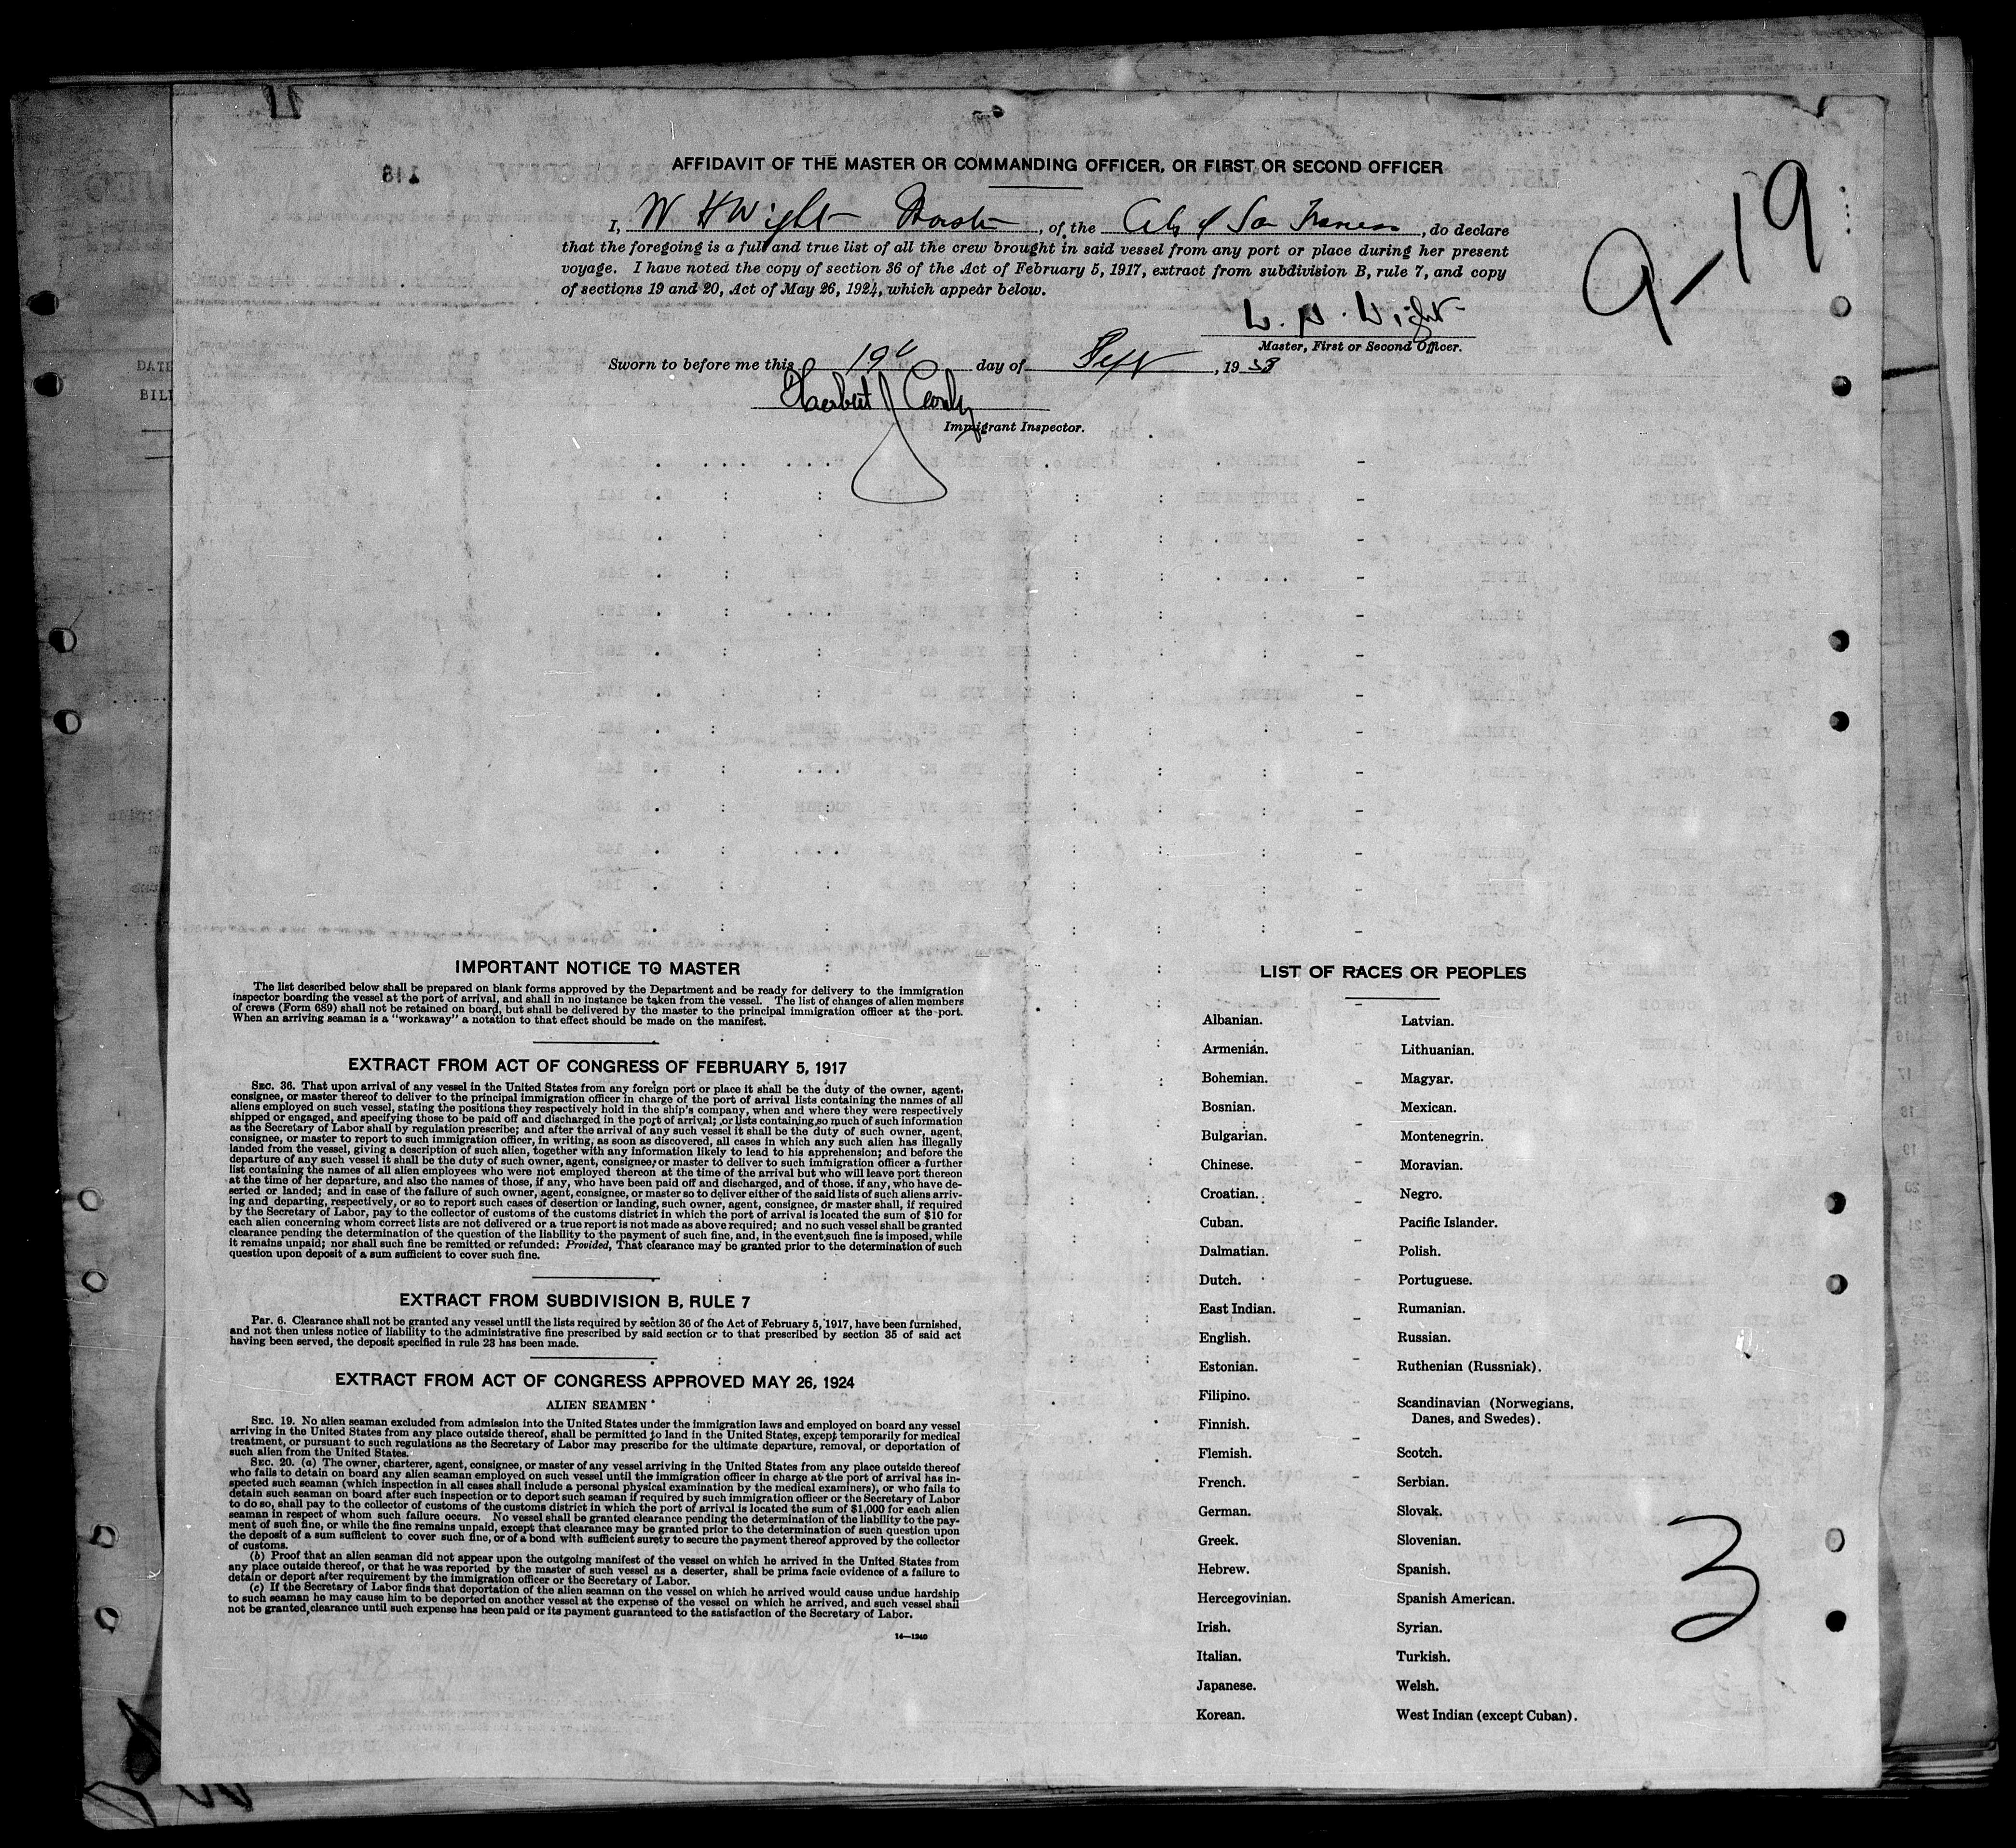 148
AFFIDAVIT OF THE MASTER OR COMMANDING OFFICER, OR FIRST OR SECOND OFFICER
I, W H Wight Master, of the City of San Francisco, do declare
that the foregoing is a full and true list of all the crew brought in said vessel from any port or place during her present
voyage. I have noted the copy of section 36 of the Act of February 5, 1917, extract from subdivision B, rule 7, and copy
of sections 19 and 20, Act of May 26, 1924, which appear below.
9-19
W. H. Wight
Master, First or Second Officer.
Sworn to before me this 19 day of Sept, 1938
Herbert J
Immigrant Inspector.
IMPORTANT NOTICE TO MASTER
The list described below shall be prepared on blank forms approved by the Department and be ready for delivery to the immigration
inspector boarding the vessel at the port of arrival, and shall in no instance be taken from the vessel. The list of changes of alien members
of crews (Form 689) shall not be retained on board, but shall be delivered by the master to the principal immigration officer at the port.
When an arriving seaman is a "workaway" a notation to that effect should be made on the manifest.
EXTRACT FROM ACT OF CONGRESS OF FEBRUARY 5, 1917
SEC. 36. That upon arrival of any vessel in the United States from any foreign port or place it shall be the duty of the owner, agent,
consignee, or master thereof to deliver to the principal immigration officer in charge of the port of arrival lists containing the names of all
aliens employed on such vessel, stating the positions they respectively hold in the ship's company, when and where they were respectively
shipped or engaged, and specifying those to be paid off and discharged in the port of arrival; or lists containing so much of such information
as the Secretary of Labor shall by regulation prescribe; and after the arrival of any such vessel it shall be the duty of such owner, agent,
consignee, or master to report to such immigration officer, in writing, as soon as discovered, all cases in which any such alien has illegally
landed from the vessel, giving a description of such alien, together with any information likely to lead to his apprehension; and before the
departure of any such vessel it shall be the duty of such owner, agent, consignee, or master to deliver to such immigration officer a further
list containing the names of all alien employees who were not employed thereon at the time of the arrival but who will leave port thereon
at the time of her departure, and also the names of those, if any, who have been paid off and discharged, and of those, if any, who have de-
serted or landed; and in case of the failure of such owner, agent, consignee, or master so to deliver either of the said lists of such aliens arriv-
ing and departing, respectively, or so to report such cases of desertion or landing, such owner, agent, consignee, or master shall, if required
by the Secretary of Labor, pay to the collector of customs of the customs district in which the port of arrival is located the sum of $10 for
each alien concerning whom correct lists are not delivered or a true report is not made as above required; and no such vessel shall be granted
clearance pending the determination of the question of the liability to the payment of such fine, and, in the event such fine is imposed, while
it remains unpaid; nor shall such fine be remitted or refunded: Provided, That clearance may be granted prior to the determination of such
question upon deposit of a sum sufficient to cover such fine.
EXTRACT FROM SUBDIVISION B, RULE 7
PAR. 6. Clearance shall not be granted any vessel until the lists required by section 36 of the Act of February 5, 1917, have been furnished,
and not then unless notice of liability to the administrative fine prescribed by said section or to that prescribed by section 35 of said act
having been served, the deposit specified in rule 23 has been made.
EXTRACT FROM ACT OF CONGRESS APPROVED MAY 26, 1924
ALIEN SEAMEN
SEC. 19. No alien seaman excluded from admission into the United States under the immigration laws and employed on board any vessel
arriving in the United States from any place outside thereof, shall be permitted to land in the United States, except temporarily for medical
treatment, or pursuant to such regulations as the Secretary of Labor may prescribe for the ultimate departure, removal, or deportation of
such alien from the United States.
SEC. 20. (a) The owner, charterer, agent, consignee, or master of any vessel arriving in the United States from any place outside thereof
who fails to detain on board any alien seaman employed on such vessel until the immigration officer in charge at the port of arrival has in-
spected such seaman (which inspection in all cases shall include a personal physical examination by the medical examiners), or who fails to
detain such seaman on board after such inspection or to deport such seaman if required by such immigration officer or the Secretary of Labor
to do so, shall pay to the collector of customs of the customs district in which the port of arrival is located the sum of $1,000 for each alien
seaman in respect of whom such failure occurs. No vessel shall be granted clearance pending the determination of the liability to the pay-
ment of such fine, or while the fine remains unpaid, except that clearance may be granted prior to the determination of such question upon
the deposit of a sum sufficient to cover such fine, or of a bond with sufficient surety to secure the payment thereof approved by the collector
of customs.
(b) Proof that an alien seaman did not appear upon the outgoing manifest of the vessel on which he arrived in the United States from
any place outside thereof, or that he was reported by the master of such vessel as a deserter, shall be prima facie evidence of a failure to
detain or deport after requirement by the immigration officer or the Secretary of Labor.
(c) If the Secretary of Labor finds that deportation of the alien seaman on the vessel on which he arrived would cause undue hardship
to such seaman he may cause him to be deported on another vessel at the expense of the vessel on which he arrived, and such vessel shall
not be granted clearance until such expense has been paid or its payment guaranteed to the satisfaction of the Secretary of Labor.
14—1240
LIST OF RACES OR PEOPLES
Albanian.
Armenian.
Bohemian.
Bosnian.
Bulgarian.
Chinese.
Croatian.
Cuban.
Dalmatian.
Dutch.
East Indian.
English.
Estonian.
Filipino.
Finnish.
Flemish.
French.
German.
Greek.
Hebrew.
Hercegovinian.
Irish.
Italian.
Japanese.
Korean.
Latvian.
Lithuanian.
Magyar.
Mexican.
Montenegrin.
Moravian.
Negro.
Pacific Islander.
Polish.
Portuguese.
Rumanian.
Russian.
Ruthenian (Russniak).
Scandinavian (Norwegians,
Danes, and Swedes).
Scotch.
Serbian.
Slovak.
Slovenian.
Spanish.
Spanish American.
Syrian.
Turkish.
Welsh.
West Indian (except Cuban).
3